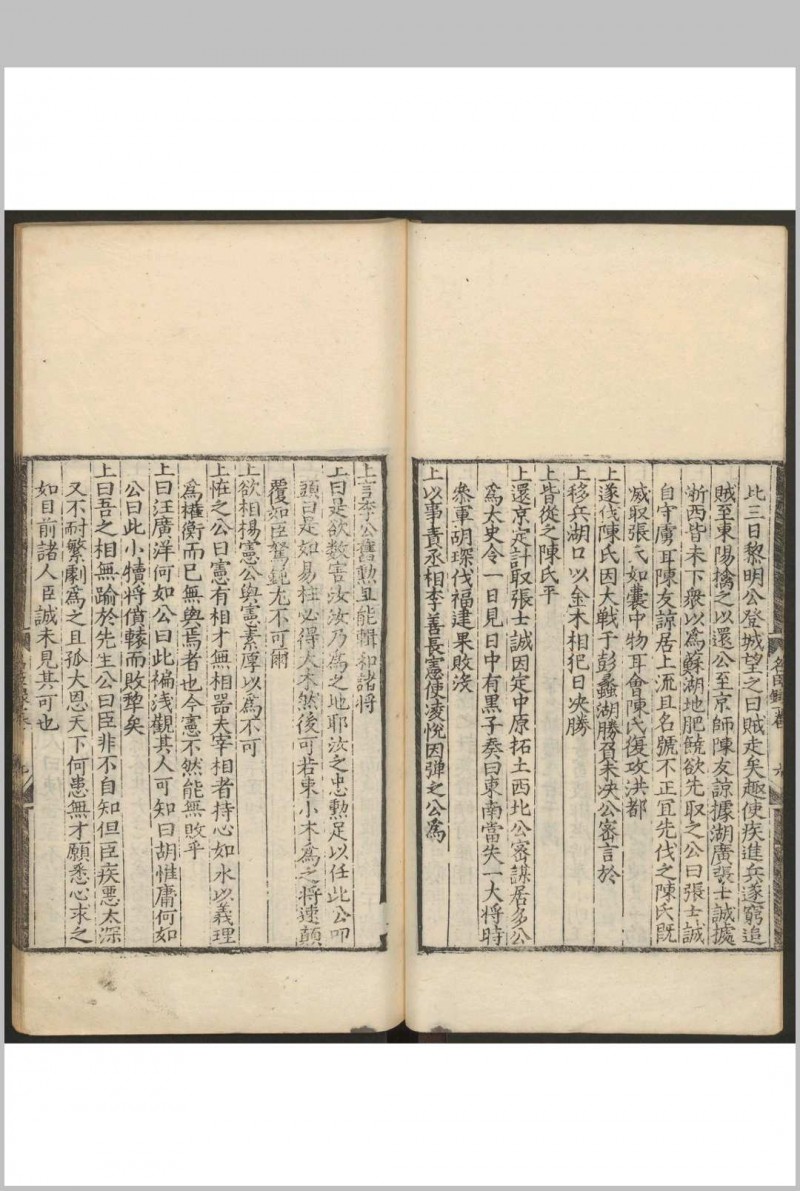 比三日黎明公登城望之曰賊走矣趣使疾進兵遂窮追
賊至東陽擒之以還公至京師陳友諒據湖廣張士誠據
浙西皆未下衆以爲蘇湖地肥饒欲先取之公曰張士誠
自守虜耳陳友諒居上流且名號不正宜先伐之陳氏既
滅取張氏如囊中物耳會陳氏復攻洪都
上遂伐陳氏因大戰于彭蠡湖勝負未决公密言於
上移兵湖口以金木相犯日决勝
上皆從之陳氏平
上還京定計取張士誠因定中原拓土西北公密謀居多公
爲太史令一日見日中有黒子奏曰東南當失一大將時
叅軍胡琛伐福建果敗没
上以事責丞相李善長憲使凌悅因彈之公爲
上言李公舊勲且能輯和諸將
上曰是欲数害汝汝乃爲之地耶汝之忠勲足以任此公叩
頭曰是如易柱必得大木然後可若束小木爲之將速顛
覆如臣駑鈍尤不可爾
上欲相楊憲公與憲素厚以爲不可
上恠之公曰憲有相才無相器夫宰相者持心如水以義理
爲權衡而已無與焉者也今憲不然能無敗乎
上曰汪廣洋何如公曰此褊浅觀其人可知曰胡惟庸何如
公曰此小犢將僨轅而敗犂矣
上曰吾之相無踰於先生公曰臣非不自知但臣疾惡太深
又不耐繁劇爲之且孤大恩天下何患無才願悉心求之
如目前諸人臣誠未見其可也